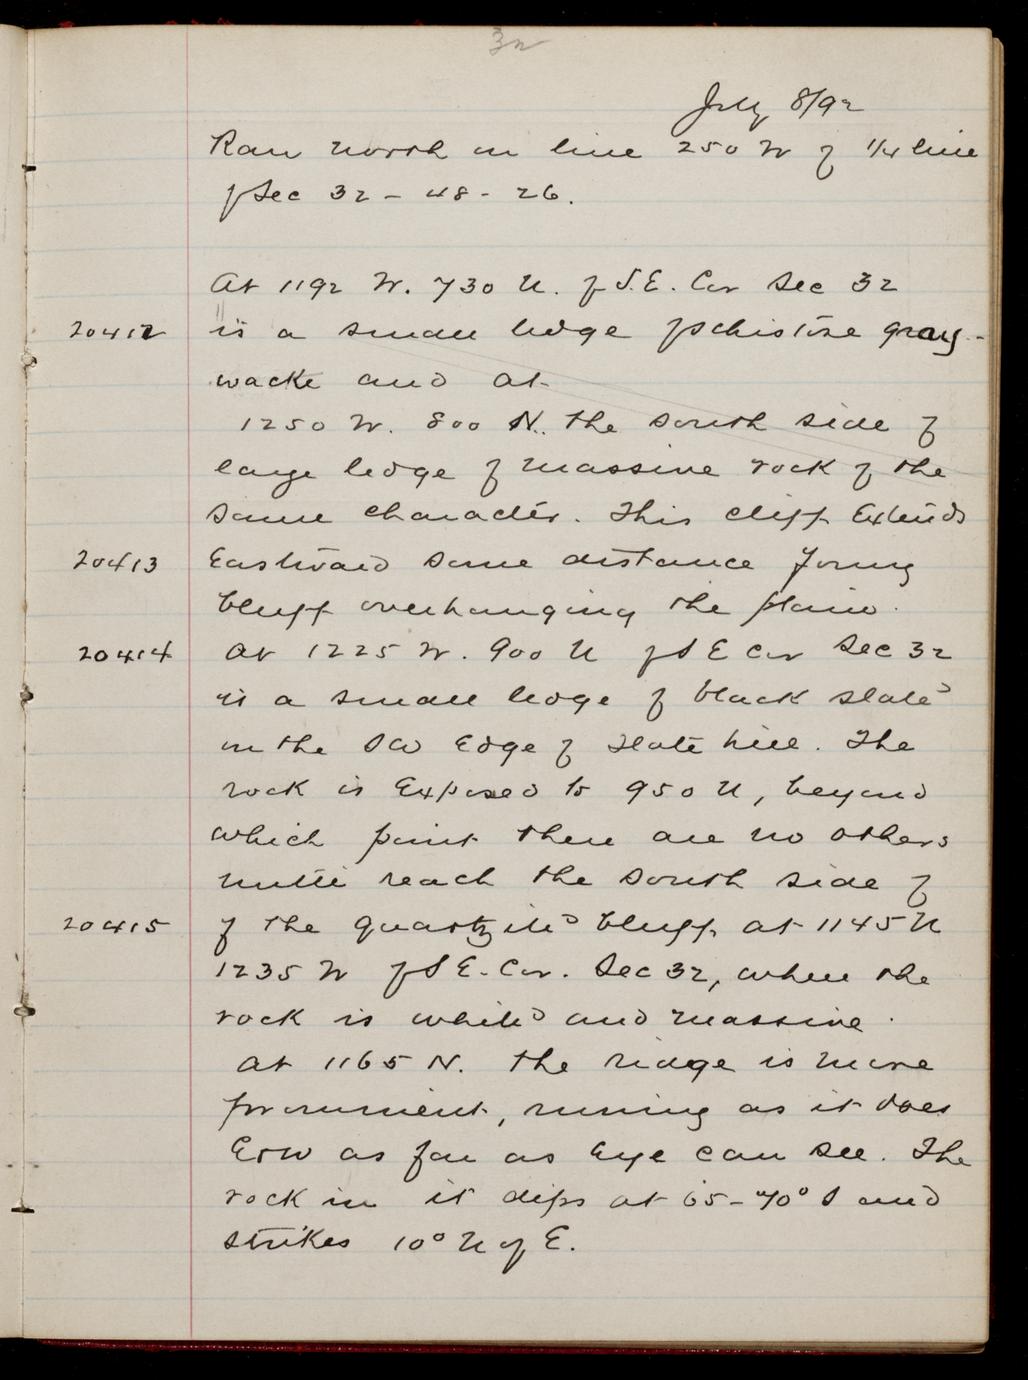 32
July 8/92
Ran north on line 250 W of 1/4 line
of Sec 32 - 48 - 26.
At 1192 W. 730 N. of S.E. Cor Sec 32
20412 is a small ledge of schistose gray-
wacke and at
1250 W. 800 N. the south side of
large ledge of massive rock of the
same character. This cliff extends
20413 Eastward some distance forming
bluff overhanging the plain.
20414 At 1225 W. 900 N of S E Cor Sec 32
is a small ledge of black slate
on the SW Edge of slate hill. The
rock is Exposed to 950 N, beyond
which point there are no others
until reach the south side of
20415 of the quartzite bluff at 1145 N
1235 W of S E. Cor. Sec 32, where the
rock is white and massive.
At 1165 N. the ridge is more
prominent, running as it does
E & W as far as Eye can see. The
rock in it dips at 65-70° S and
strikes 10° N of E.